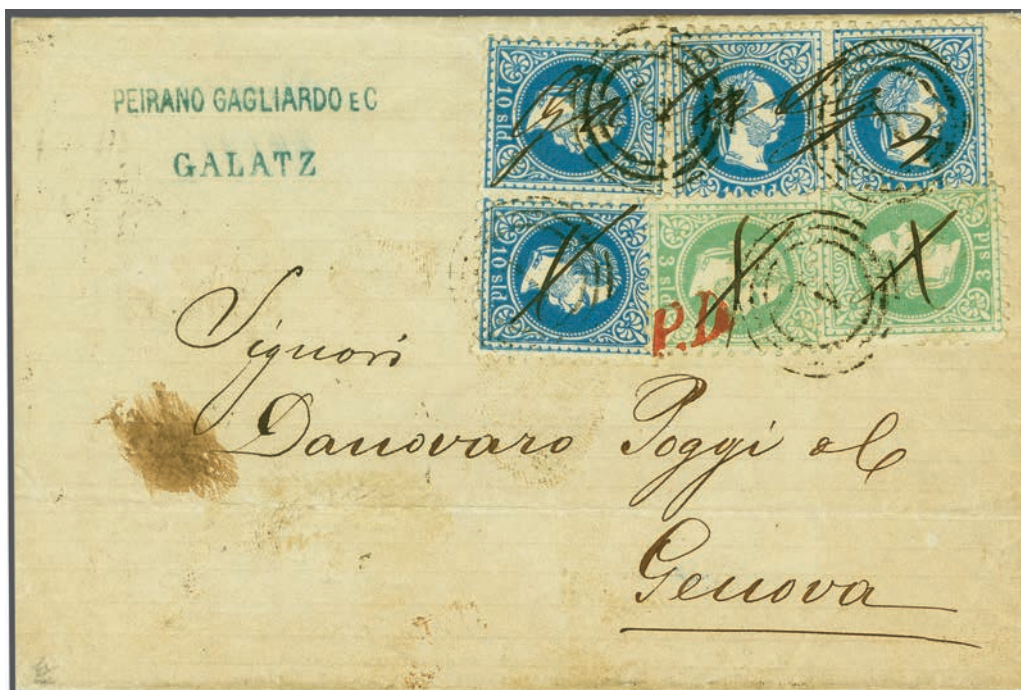 PEIRANO GAGLIARDO E C
GALATZ
10 sld
10 sld
10 sld
3 sld
3 sld
P.D.
Signori
Danovaro Poggi & C
Genova